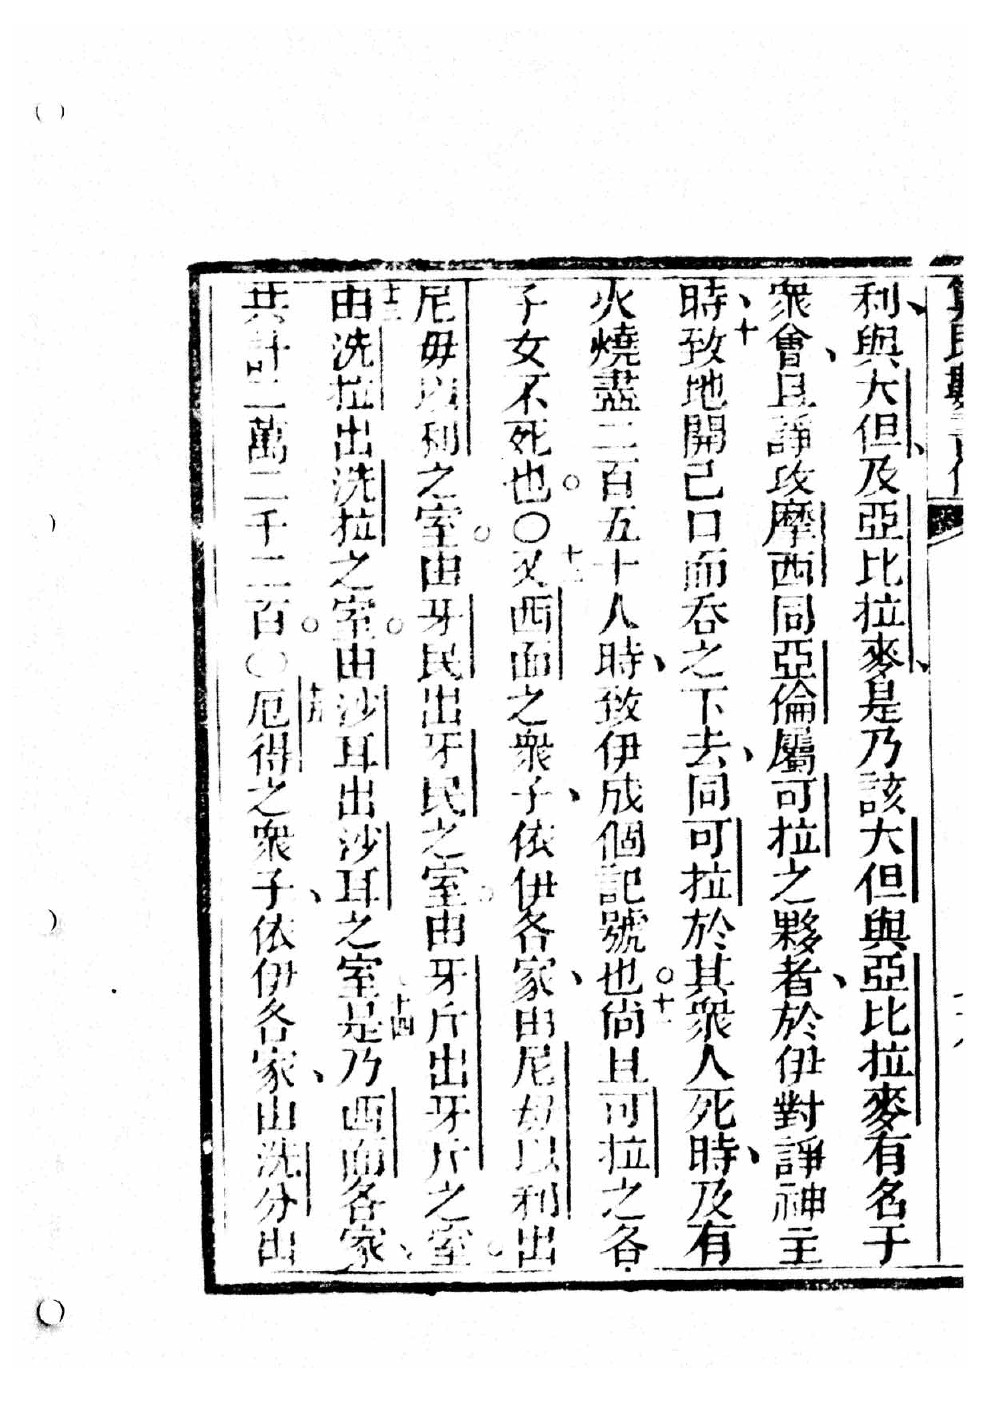 利、與大但、及亞比拉麥、是乃該大但與亞比拉麥有名于
衆會、且諍攻摩西同亞倫屬可拉之夥者、於伊對諍神主
時、十致地開己口而吞之下去、同可拉於其衆人死時、及有
火燒盡二百五十人時、致伊成個記號也。十一尙且可拉之各
子女不死也。○十二又西面之衆子、依伊各家、由尼母以利出
尼毋以利之室。由牙民出牙民之室。由牙斤出牙斤之室。
十三由洗拉出洗拉之室。由沙耳出沙耳之室。十四是乃西面各家、
共計二萬二千二百。○十五厄得之衆子、依伊各家、由洗分出